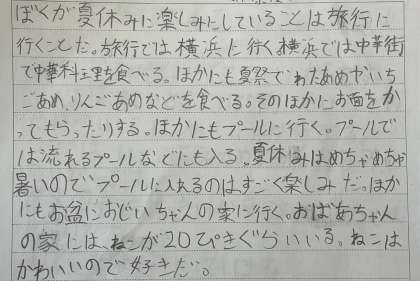 ぼくが夏休みに楽しみにしていることは旅行に
行くことだ。旅行では横浜に行く。横浜では中華街
で中華料理を食べる。ほかにも夏祭でわたあめやいち
ごあめ、りんごあめなどを食べる。そのほかにお面をか
ってもらったりする。ほかにもプールに行く。プールで
は流れるプールなどにも入る。夏休みはめちゃめちゃ
暑いのでプールに入れるのはすごく楽しみだ。ほか
にもお盆におじいちゃんの家に行く。おばあちゃん
の家には、ねこが20ぴきぐらいいる。ねこは
かわいいので好きだ。